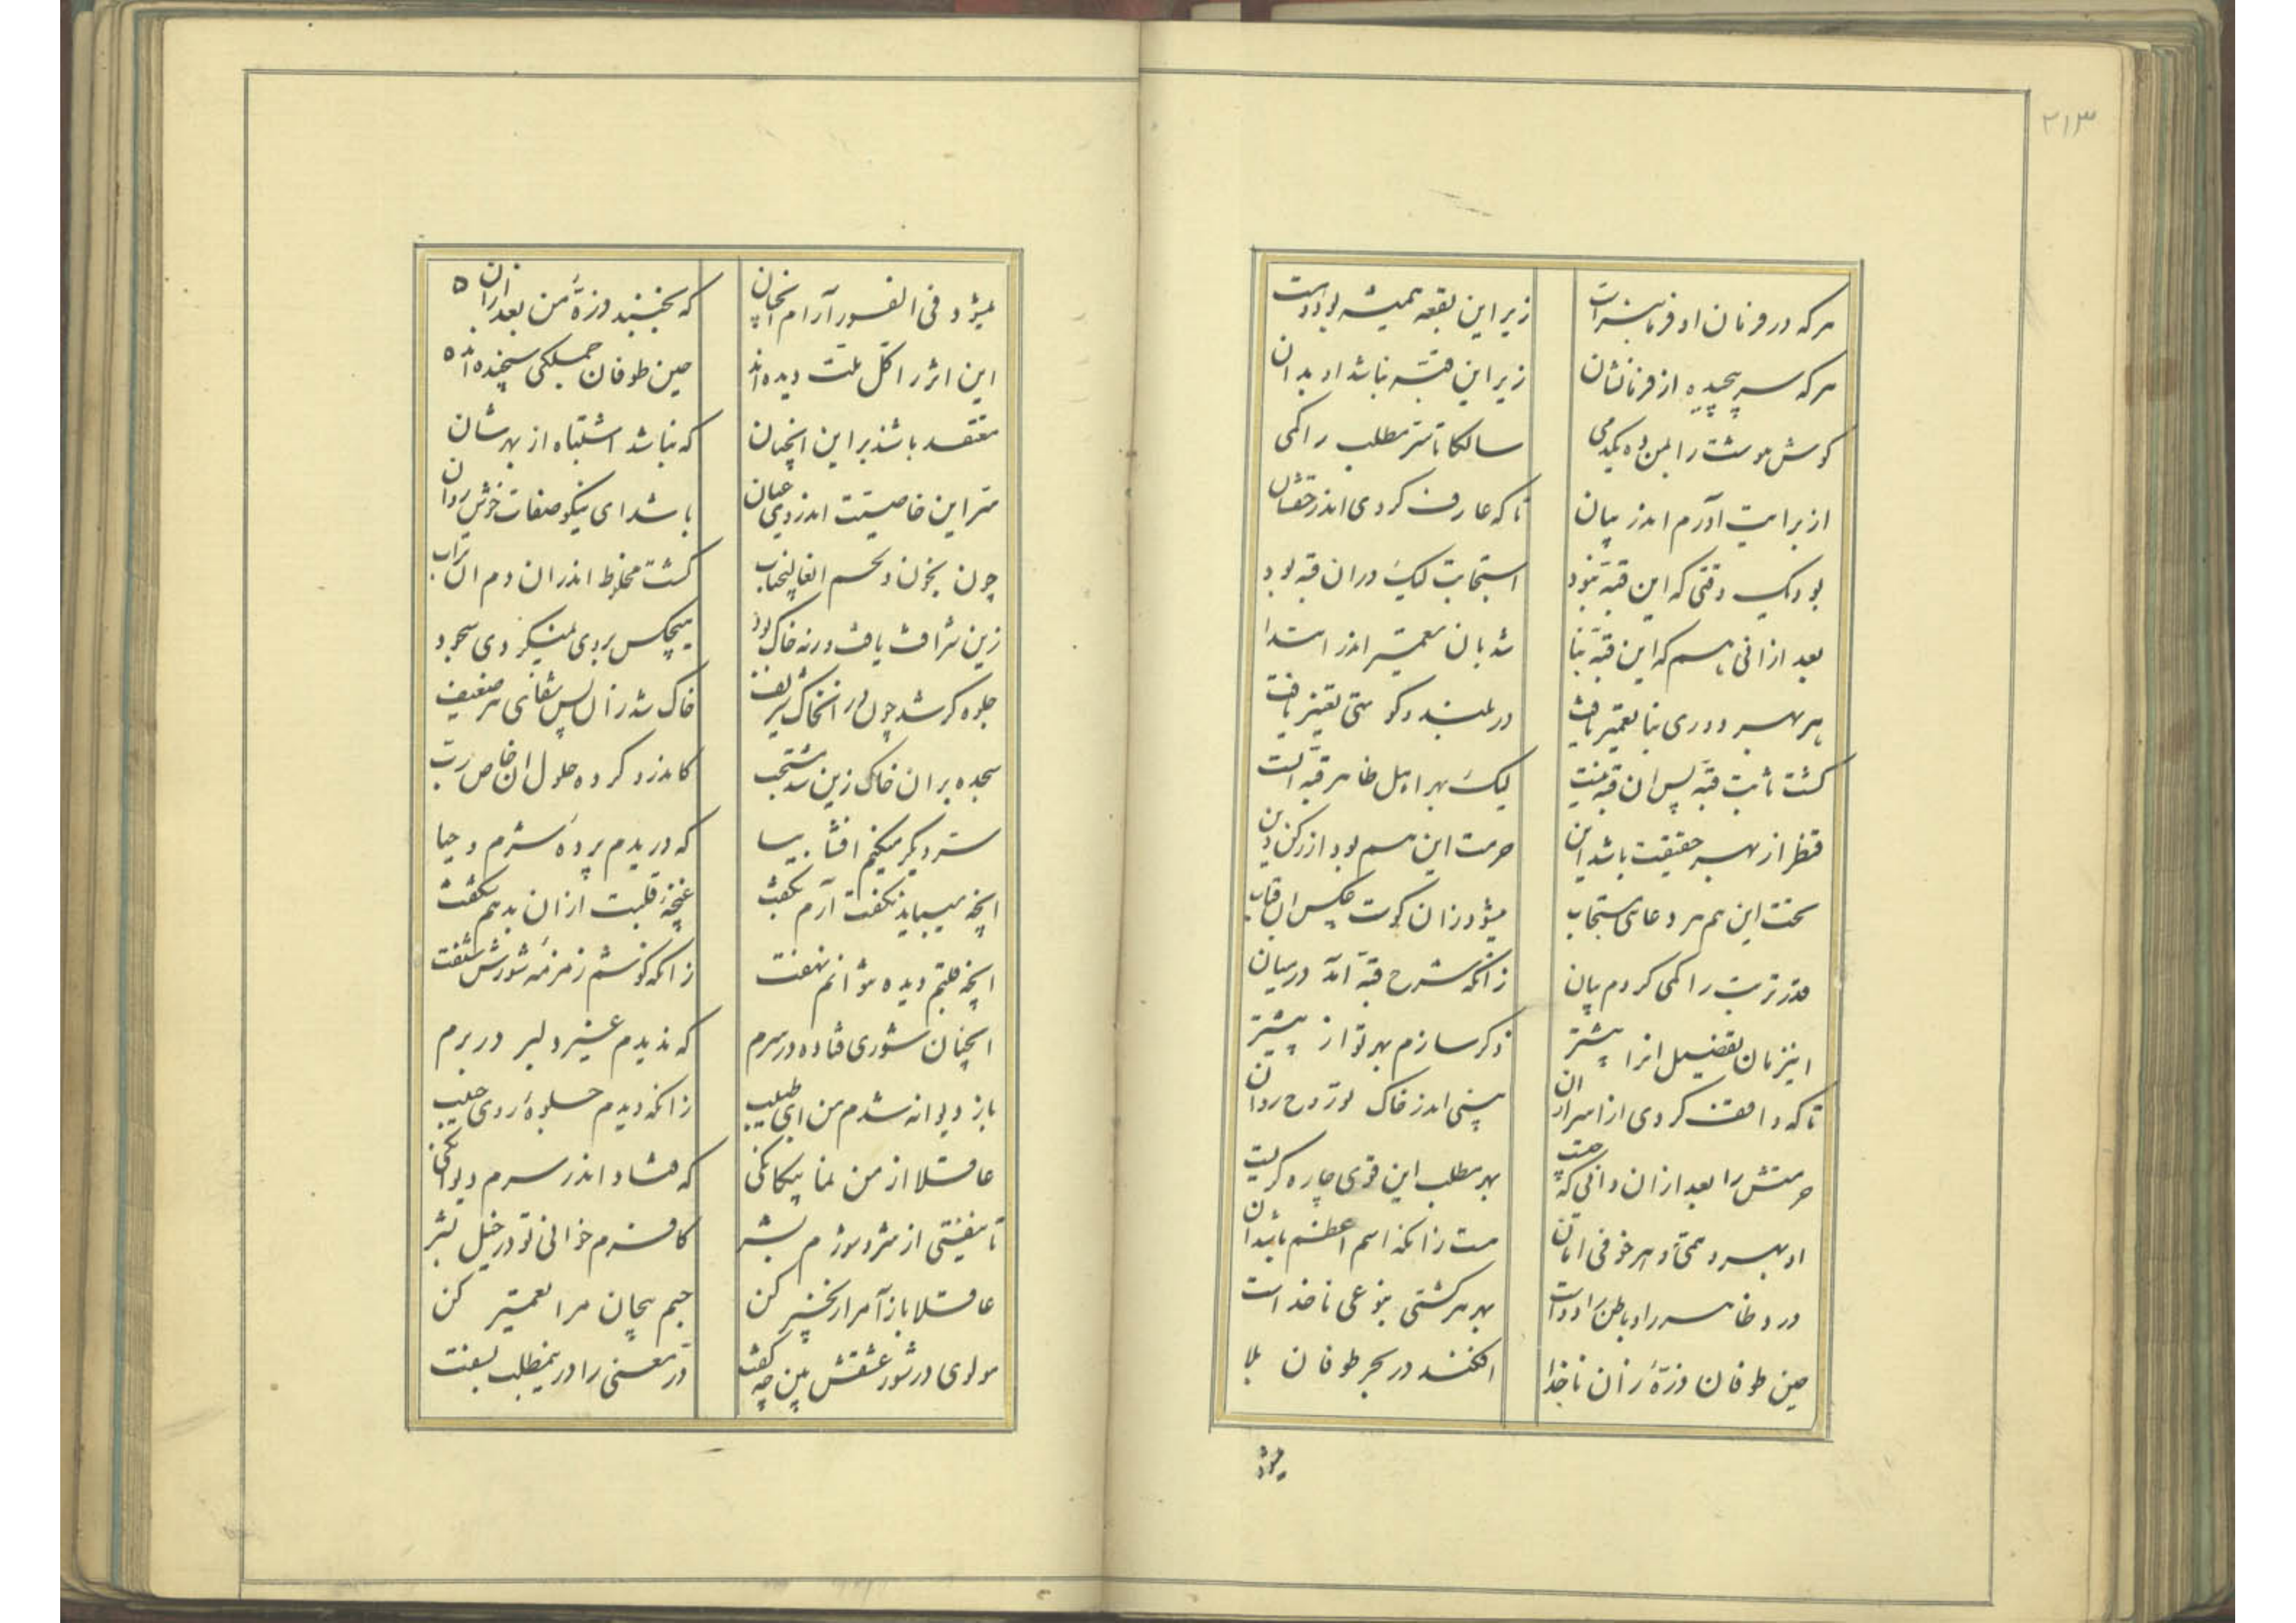 ۲۱۳
هر که در فرمان او فرمانبر است زیر این بقعه همیشه بوده است
هر که سر پیچیده از فرمانشان زیر این قبه نباشد او بدان
گوش هوشت را بمن ده یکدمی سالکا تا سر مطلب را کمی
از برایت آورم اندر بیان تا که عارف گردی اندر حقشان
بود یک وقتی که این قبه نبود استجابت لیک در آن قبه بود
بعد از آنی هم که این قبه بنا شد بآن تعمیر اندر ابتدا
بهر هر دوری بنا تعمیر یافت در بلند و کوتهی تغییر یافت
گشت ثابت قبه پس آن قبه نیست لیک بهر اهل ظاهر قبه است
از بهر حقیقت باشد این حرمت این هم بود از رکن دین
تحت این هم هر دعای مستجاب میشود زان گوت عکس آن قباب
قدر تربت را کمی کردم بیان زانکه شرح قبه آمد در میان
اینزمان تفصیل آنرا بیشتر ذکر سازم بهر تو از پیشتر
تا که واقف گردی از اسرار آن بینی اندر خاک نور روح روان
حرمتش را بعد از آن دانی که چیست بهر مطلب این قوی چاره گریست
او بهر درد و هر خوفی امان هست زانکه اسم اعظم باشد آن
درد ظاهر را و باطن را دواست بهر هر کشتی بنوعی ناخداست
حین طوفان ذرهٔ زان ناخدا افکند در بحر طوفان بلا
میشود
میشود فی الفور آرام آنچنان که نجنبد ذرهٔ من بعد از آن
این اثر را کل ملت دیده‌اند حین طوفان جملگی سنجیده‌اند
معتقد باشند بر این آنچنان که نباشد اشتباه از بهرشان
سر این خاصیت اندر وی عیان باشد ای نیکو صفات خوش روان
چون بخون و لحم آنعالیجناب گشت مخلوط اندران دم آن تراب
زین شرافت یافت ورنه خاک بود هیچکس بر وی نمیکردی سجود
جلوه گر شد چون در آنخاک شریف خاک شد زان پس شفای هر ضعیف
سجده بر آن خاک زین شد مستحب کاندرو کرده حلول آن خاص رب
سر دیگر میکنم افشا بیا که دریدم پردهٔ شرم و حیا
آنچه میباید نگفت آرم بگفت غنچهٔ قلبت از آن بدهم شگفت
آنچه قلبم دیده نتوانم نهفت زانکه گوشم زمزمهٔ شورش شنفت
آنچنان شوری فتاده در سرم که ندیدم غیر دلبر در برم
باز دیوانه شدم من ای طبیب زانکه دیدم جلوهٔ روی حبیب
عاقلا از من نما بیگانگی که فتاد اندر سرم دیوانگی
تا نیفتی از شر و شورم بشر کافرم خوانی تو در خیل بشر
عاقلا باز آ مرا زنجیر کن جسم بیجان مرا تعمیر کن
مولوی در شور عشقش بین چه گفت در معنی را در ینمطلب بسفت